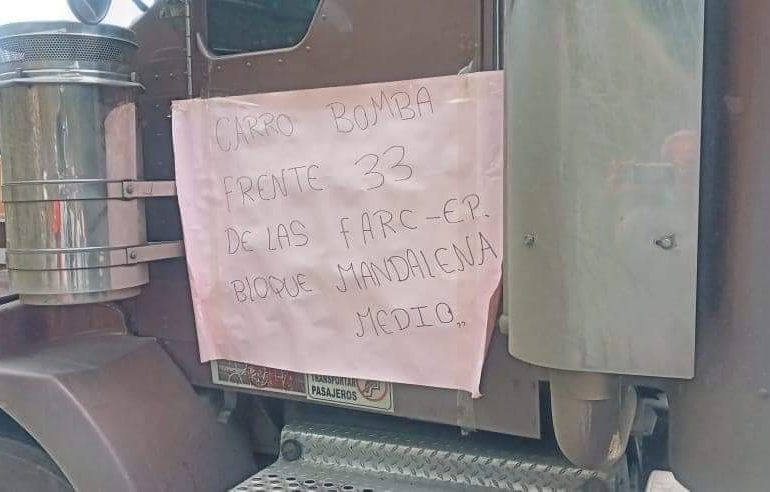 CARRO BOMBA
FRENTE 33
DE LAS FARC-E.P.
BLOQUE MANDALENA
MEDIO,,
TRANSPORTAR
PASAJEROS